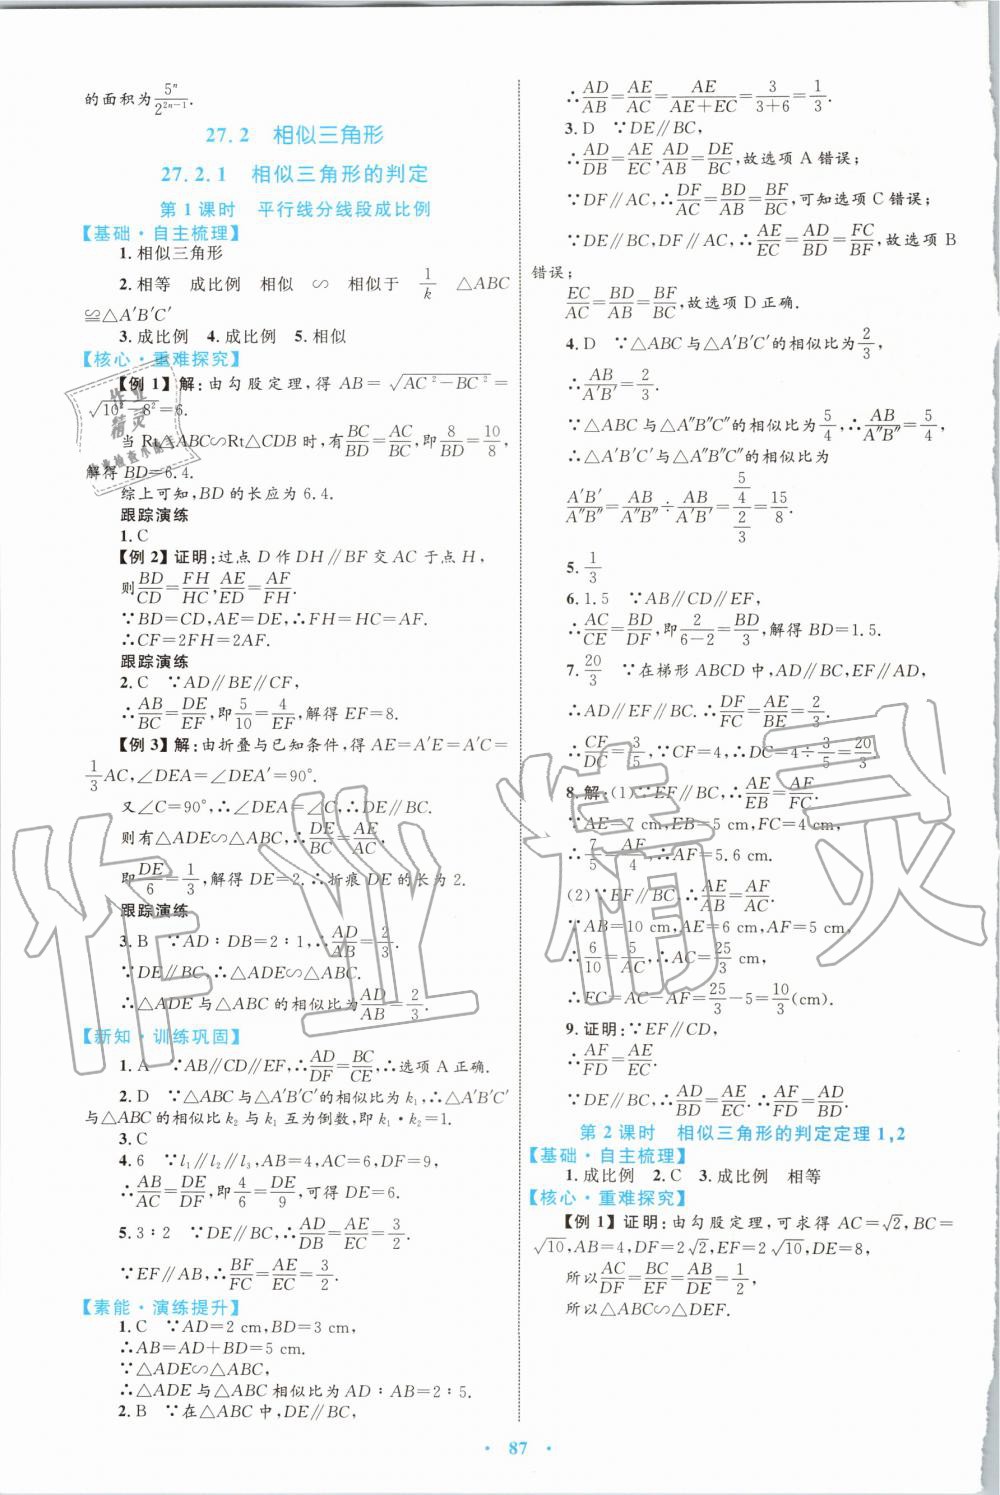 的面积为5ⁿ/2²ⁿ⁻¹.
27.2 相似三角形
27.2.1 相似三角形的判定
第1课时 平行线分线段成比例
【基础·自主梳理】
1.相似三角形
2.相等 成比例 相似 ∽ 相似于 1/k △ABC
≌△A′B′C′
3.成比例 4.成比例 5.相似
【核心·重难探究】
【例1】解:由勾股定理,得 AB=√(AC²-BC²)=
√(10²-8²)=6.
当 Rt△ABC∽Rt△CDB 时,有BC/BD=AC/BC,即8/BD=10/8,
解得 BD=6.4.
综上可知,BD 的长应为 6.4.
跟踪演练
1.C
【例2】证明:过点 D 作 DH∥BF 交 AC 于点 H,
则BD/CD=FH/HC,AE/ED=AF/FH.
∵BD=CD,AE=DE,∴FH=HC=AF.
∴CF=2FH=2AF.
跟踪演练
2.C ∵AD∥BE∥CF,
∴AB/BC=DE/EF,即5/10=4/EF,解得 EF=8.
【例3】解:由折叠与已知条件,得 AE=A′E=A′C=
1/3AC,∠DEA=∠DEA′=90°.
又∠C=90°,∴∠DEA=∠C,∴DE∥BC.
则有△ADE∽△ABC,∴DE/BC=AE/AC,
即DE/6=1/3,解得 DE=2.∴折痕 DE 的长为 2.
跟踪演练
3.B ∵AD∶DB=2∶1,∴AD/AB=2/3.
∵DE∥BC,∴△ADE∽△ABC.
∴△ADE 与△ABC 的相似比为AD/AB=2/3.
【新知·训练巩固】
1.A ∵AB∥CD∥EF,∴AD/DF=BC/CE,选项 A 正确.
2.D ∵△ABC 与△A′B′C′的相似比为 k₁,∴△A′B′C′
与△ABC 的相似比 k₂ 与 k₁ 互为倒数,即 k₁·k₂=1.
3.C
4.6 ∵l₁∥l₂∥l₃,AB=4,AC=6,DF=9,
∴AB/AC=DE/DF,即4/6=DE/9,可得 DE=6.
5.3∶2 ∵DE∥BC,∴AD/DB=AE/EC=3/2.
∵EF∥AB,∴BF/FC=AE/EC=3/2.
【素能·演练提升】
1.C ∵AD=2 cm,BD=3 cm,
∴AB=AD+BD=5 cm.
∵△ADE∽△ABC,
∴△ADE 与△ABC 相似比为 AD∶AB=2∶5.
2.B ∵在△ABC 中,DE∥BC,
∴AD/AB=AE/AC=AE/(AE+EC)=3/(3+6)=1/3.
3.D ∵DE∥BC,
∴AD/DB=AE/EC,AD/AB=DE/BC,故选项 A 错误;
∵DF∥AC,∴DF/AC=BD/BA=BF/BC,可知选项 C 错误;
∵DE∥BC,DF∥AC,∴AE/EC=AD/BD=FC/BF,故选项 B
错误;
EC/AC=BD/AB=BF/BC,故选项 D 正确.
4.D ∵△ABC 与△A′B′C′的相似比为2/3,
∴AB/A′B′=2/3.
∵△ABC 与△A″B″C″的相似比为5/4,∴AB/A″B″=5/4.
∴△A′B′C′与△A″B″C″的相似比为
A′B′/A″B″=AB/A″B″÷AB/A′B′=(5/4)/(2/3)=15/8.
5.1/3
6.1.5 ∵AB∥CD∥EF,
∴AC/CE=BD/DF,即2/(6-2)=BD/3,解得 BD=1.5.
7.20/3 ∵在梯形 ABCD 中,AD∥BC,EF∥AD,
∴AD∥EF∥BC.∴DF/FC=AE/BE=2/3.
∴CF/DC=3/5.∵CF=4,∴DC=4÷3/5=20/3.
8.解:(1)∵EF∥BC,∴AE/EB=AF/FC.
∵AE=7 cm,EB=5 cm,FC=4 cm,
∴7/5=AF/4,∴AF=5.6 cm.
(2)∵EF∥BC,∴AE/AB=AF/AC.
∵AB=10 cm,AE=6 cm,AF=5 cm,
∴6/10=5/AC,∴AC=25/3 cm.
∴FC=AC-AF=25/3-5=10/3(cm).
9.证明:∵EF∥CD,
∴AF/FD=AE/EC.
∵DE∥BC,∴AD/BD=AE/EC,∴AF/FD=AD/BD.
第2课时 相似三角形的判定定理1,2
【基础·自主梳理】
1.成比例 2.C 3.成比例 相等
【核心·重难探究】
【例1】证明:由勾股定理,可求得 AC=√2,BC=
√10,AB=4,DF=2√2,EF=2√10,DE=8,
所以AC/DF=BC/EF=AB/DE=1/2,
所以△ABC∽△DEF.
· 87 ·
作业精灵
作业
精灵